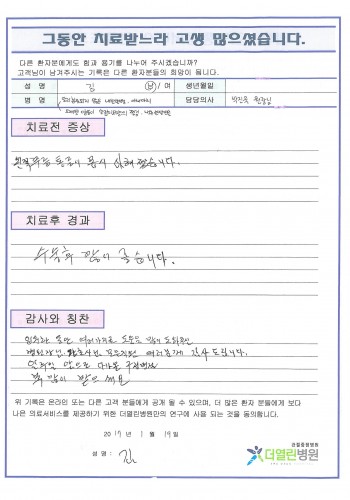 그동안 치료받느라 고생 많으셨습니다.
다른 환자분에게도 힘과 용기를 나누어 주시겠습니까?
고객님이 남겨주시는 기록은 다른 환자분들의 희망이 됩니다.
성 명 김 남 / 여 생년월일
병 명 담당의사 원장님
치료전 증상
왼쪽무릎 통증이 몹시 심했습니다.
치료후 경과
수술후 많이 좋습니다.
감사와 칭찬
입원한 동안 여러가지로 도움을 많이 주신
병원장님 간호사님 모든직원 여러분께 감사드립니다.
복 많이 받으세요
위 기록은 온라인 또는 다른 고객 분들에게 공개 될 수 있으며, 더 많은 환자 분들에게 보다
나은 의료서비스를 제공하기 위한 더열린병원만의 연구에 사용 되는 것을 동의합니다.
2019년 1월 19일
성 명 : 김
관절중점병원
더열린병원